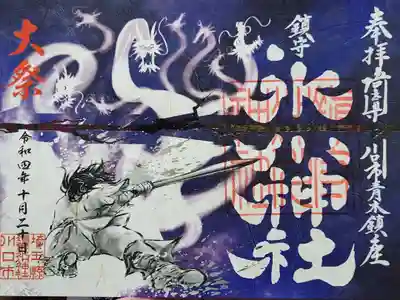 奉拝
川口市青木鎮座
鎮守
氷川神社
大祭
令和四年十月二十日
埼玉県
川口市